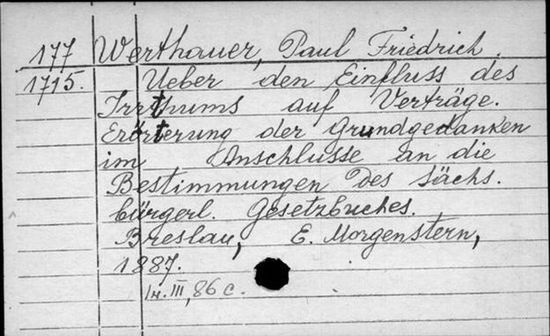 177 Werthauer, Paul Friedrich.
1715. Ueber den Einfluss des
Irrthums auf Verträge.
Erörterung der Grundgedanken
im Anschlusse an die
Bestimmungen des sächs.
bürgerl. Gesetzbuches.
Breslau, E. Morgenstern,
1887.
III, 86 c.